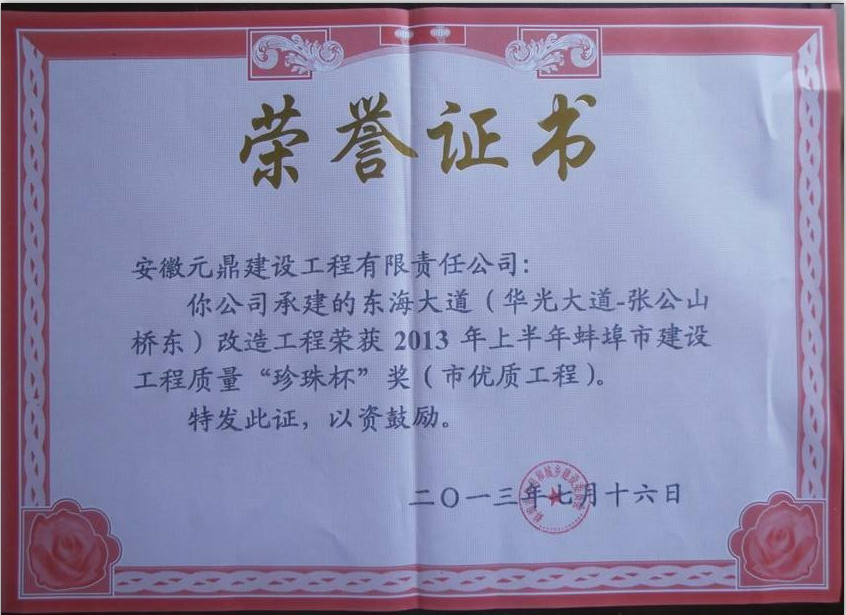 荣誉证书
安徽元鼎建设工程有限责任公司：
你公司承建的东海大道（华光大道-张公山
桥东）改造工程荣获 2013 年上半年蚌埠市建设
工程质量“珍珠杯”奖（市优质工程）。
特发此证，以资鼓励。
二〇一三年七月十六日